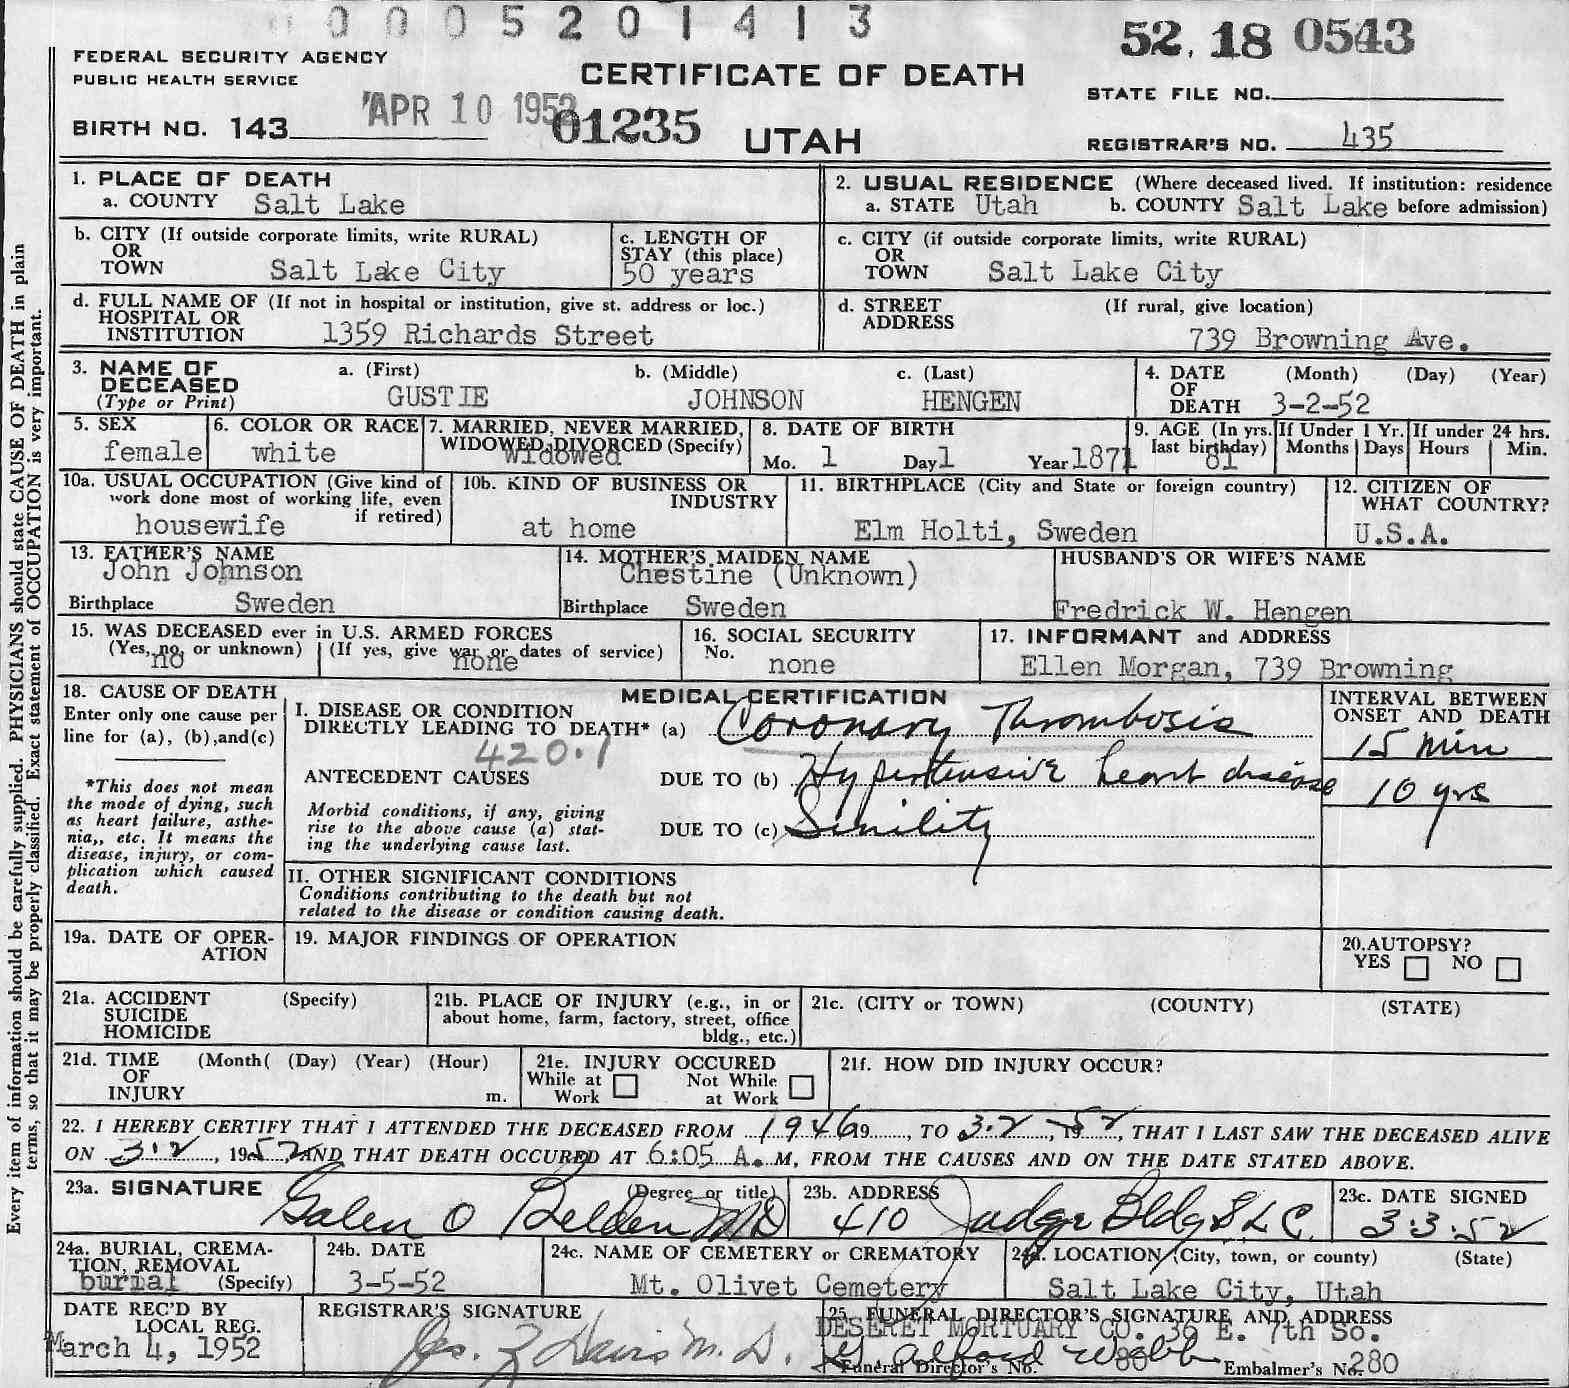 0 0 0 5 2 0 1 4 1 3
52, 18 0543
FEDERAL SECURITY AGENCY
PUBLIC HEALTH SERVICE
CERTIFICATE OF DEATH
STATE FILE NO.
APR 10 1952
BIRTH NO. 143
01235
UTAH
REGISTRAR'S NO. 435
Every item of information should be carefully supplied. PHYSICIANS should state CAUSE OF DEATH in plain
terms, so that it may be properly classified. Exact statement of OCCUPATION is very important.
1. PLACE OF DEATH
a. COUNTY Salt Lake
2. USUAL RESIDENCE (Where deceased lived. If institution: residence
a. STATE Utah b. COUNTY Salt Lake before admission)
b. CITY (If outside corporate limits, write RURAL)
OR
TOWN Salt Lake City
c. LENGTH OF
STAY (this place)
50 years
c. CITY (if outside corporate limits, write RURAL)
OR
TOWN Salt Lake City
d. FULL NAME OF (If not in hospital or institution, give st. address or loc.)
HOSPITAL OR
INSTITUTION 1359 Richards Street
d. STREET (If rural, give location)
ADDRESS
739 Browning Ave.
3. NAME OF a. (First) b. (Middle) c. (Last)
DECEASED
(Type or Print) GUSTIE JOHNSON HENGEN
4. DATE (Month) (Day) (Year)
OF
DEATH 3-2-52
5. SEX
female
6. COLOR OR RACE
white
7. MARRIED, NEVER MARRIED,
WIDOWED, DIVORCED (Specify)
widowed
8. DATE OF BIRTH
Mo. 1 Day 1 Year 1871
9. AGE (In yrs.
last birthday)
81
If Under 1 Yr.
Months Days
If under 24 hrs.
Hours Min.
10a. USUAL OCCUPATION (Give kind of
work done most of working life, even
if retired)
housewife
10b. KIND OF BUSINESS OR
INDUSTRY
at home
11. BIRTHPLACE (City and State or foreign country)
Elm Holti, Sweden
12. CITIZEN OF
WHAT COUNTRY?
U.S.A.
13. FATHER'S NAME
John Johnson
Birthplace Sweden
14. MOTHER'S MAIDEN NAME
Chestine (Unknown)
Birthplace Sweden
HUSBAND'S OR WIFE'S NAME
Fredrick W. Hengen
15. WAS DECEASED ever in U.S. ARMED FORCES
(Yes, no, or unknown) (If yes, give war or dates of service)
no none
16. SOCIAL SECURITY
No.
none
17. INFORMANT and ADDRESS
Ellen Morgan, 739 Browning
18. CAUSE OF DEATH
Enter only one cause per
line for (a), (b),and(c)
*This does not mean
the mode of dying, such
as heart failure, asthe-
nia,, etc. It means the
disease, injury, or com-
plication which caused
death.
MEDICAL CERTIFICATION
I. DISEASE OR CONDITION
DIRECTLY LEADING TO DEATH* (a) Coronary Thrombosis
420.1
ANTECEDENT CAUSES DUE TO (b) Hypertensive heart disease
Morbid conditions, if any, giving
rise to the above cause (a) stat-
ing the underlying cause last.
DUE TO (c) Sinility
INTERVAL BETWEEN
ONSET AND DEATH
15 min
10 yrs
II. OTHER SIGNIFICANT CONDITIONS
Conditions contributing to the death but not
related to the disease or condition causing death.
19a. DATE OF OPER-
ATION
19. MAJOR FINDINGS OF OPERATION
20.AUTOPSY?
YES NO
21a. ACCIDENT (Specify)
SUICIDE
HOMICIDE
21b. PLACE OF INJURY (e.g., in or
about home, farm, factory, street, office
bldg., etc.)
21c. (CITY or TOWN) (COUNTY) (STATE)
21d. TIME (Month( (Day) (Year) (Hour)
OF
INJURY m.
21e. INJURY OCCURED
While at Not While
Work at Work
21f. HOW DID INJURY OCCUR?
22. I HEREBY CERTIFY THAT I ATTENDED THE DECEASED FROM 1946 19, TO 3.2, 1952, THAT I LAST SAW THE DECEASED ALIVE
ON 3.2, 1952, AND THAT DEATH OCCURED AT 6:05 A. M, FROM THE CAUSES AND ON THE DATE STATED ABOVE.
23a. SIGNATURE (Degree or title)
Galen O Belden MD
23b. ADDRESS
410 Judge Bldg S L C.
23c. DATE SIGNED
3.3.52
24a. BURIAL, CREMA-
TION, REMOVAL
burial (Specify)
24b. DATE
3-5-52
24c. NAME OF CEMETERY or CREMATORY
Mt. Olivet Cemetery
24d. LOCATION (City, town, or county) (State)
Salt Lake City, Utah
DATE REC'D BY
LOCAL REG.
March 4, 1952
REGISTRAR'S SIGNATURE
Jas. Z Davis M.D.
25. FUNERAL DIRECTOR'S SIGNATURE AND ADDRESS
DESERET MORTUARY CO. 36 E. 7th So.
Alford Webb
Funeral Director's No. 80 Embalmer's No. 280